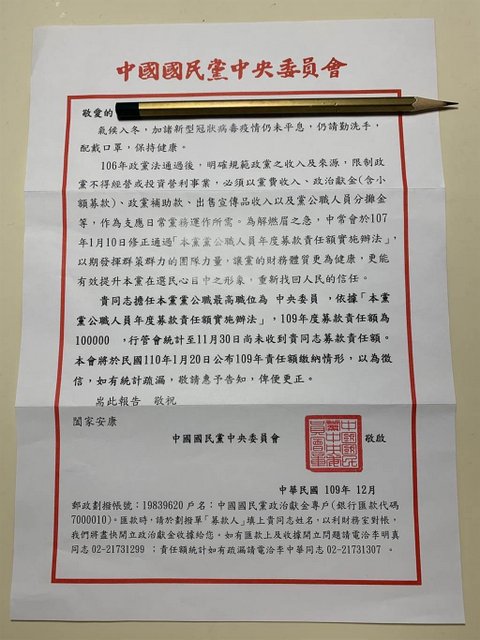 中國國民黨中央委員會
敬愛的
氣候入冬，加諸新型冠狀病毒疫情仍未平息，仍請勤洗手，
配戴口罩，保持健康。
106年政黨法通過後，明確規範政黨之收入及來源，限制政
黨不得經營或投資營利事業，必須以黨費收入、政治獻金(含小
額募款)、政黨補助款、出售宣傳品收入以及黨公職人員分攤金
等，作為支應日常黨務運作所需。為解燃眉之急，中常會於107
年1月10日修正通過「本黨黨公職人員年度募款責任額實施辦法」，
以期發揮群策群力的團隊力量，讓黨的財務體質更為健康，更能
有效提升本黨在選民心目中之形象，重新找回人民的信任。
貴同志擔任本黨黨公職最高職位為 中央委員 ，依據「本黨
黨公職人員年度募款責任額實施辦法」，109年度募款責任額為
100000 ，行管會統計至11月30日尚未收到貴同志募款責任額。
本會將於民國110年1月20日公布109年責任額繳納情形，以為徵
信，如有統計疏漏，敬請惠予告知，俾便更正。
耑此報告 敬祝
闔家安康
中國國民黨中央委員會 敬啟
中華民國 109年 12月
郵政劃撥帳號：19839620 戶名：中國國民黨政治獻金專戶(銀行匯款代碼
7000010)。匯款時，請於劃撥單「募款人」填上貴同志姓名，以利財務室對帳，
我們將盡快開立政治獻金收據給您。如有匯款上及收據開立問題請電洽李明真
同志 02-21731299 ；責任額統計如有疏漏請電洽李中華同志 02-21731307 。